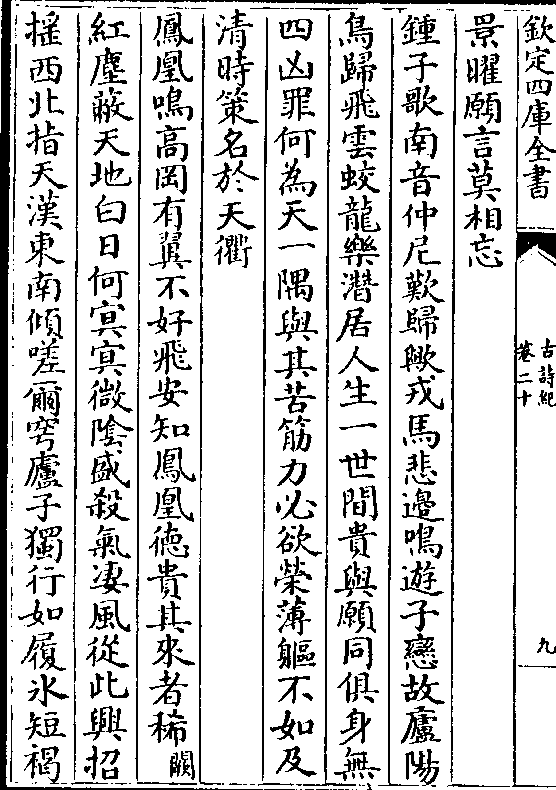 欽定四庫全書
古詩紀
卷二十
九
景曜願言莫相忘
鍾子歌南音仲尼歎歸歟戎馬悲邊鳴遊子戀故廬陽
鳥歸飛雲蛟龍樂潛居人生一世間貴與願同俱身無
四凶罪何為天一隅與其苦筋力必欲榮薄軀不如及
清時策名於天衢
鳳凰鳴高岡有翼不好飛安知鳳凰徳貴其來者稀闕
紅塵蔽天地白日何㝠㝠微陰盛殺氣凄風從此興招
揺西北指天漢東南傾嗟爾穹廬子獨行如履氷短褐